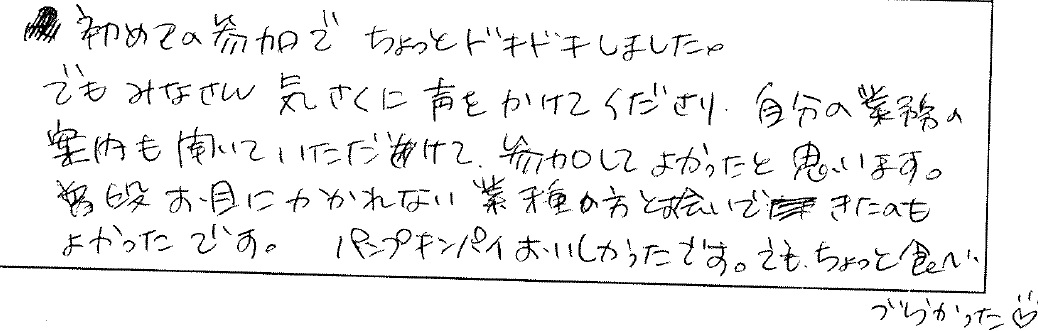 初めての参加でちょっとドキドキしました。
でもみなさん気さくに声をかけてくださり、自分の業務の
案内も聞いていただけて、参加してよかったと思います。
普段お目にかかれない業種の方と出会いできたのも
よかったです。 パンプキンパイおいしかったです。でも、ちょっと食べ
づらかった